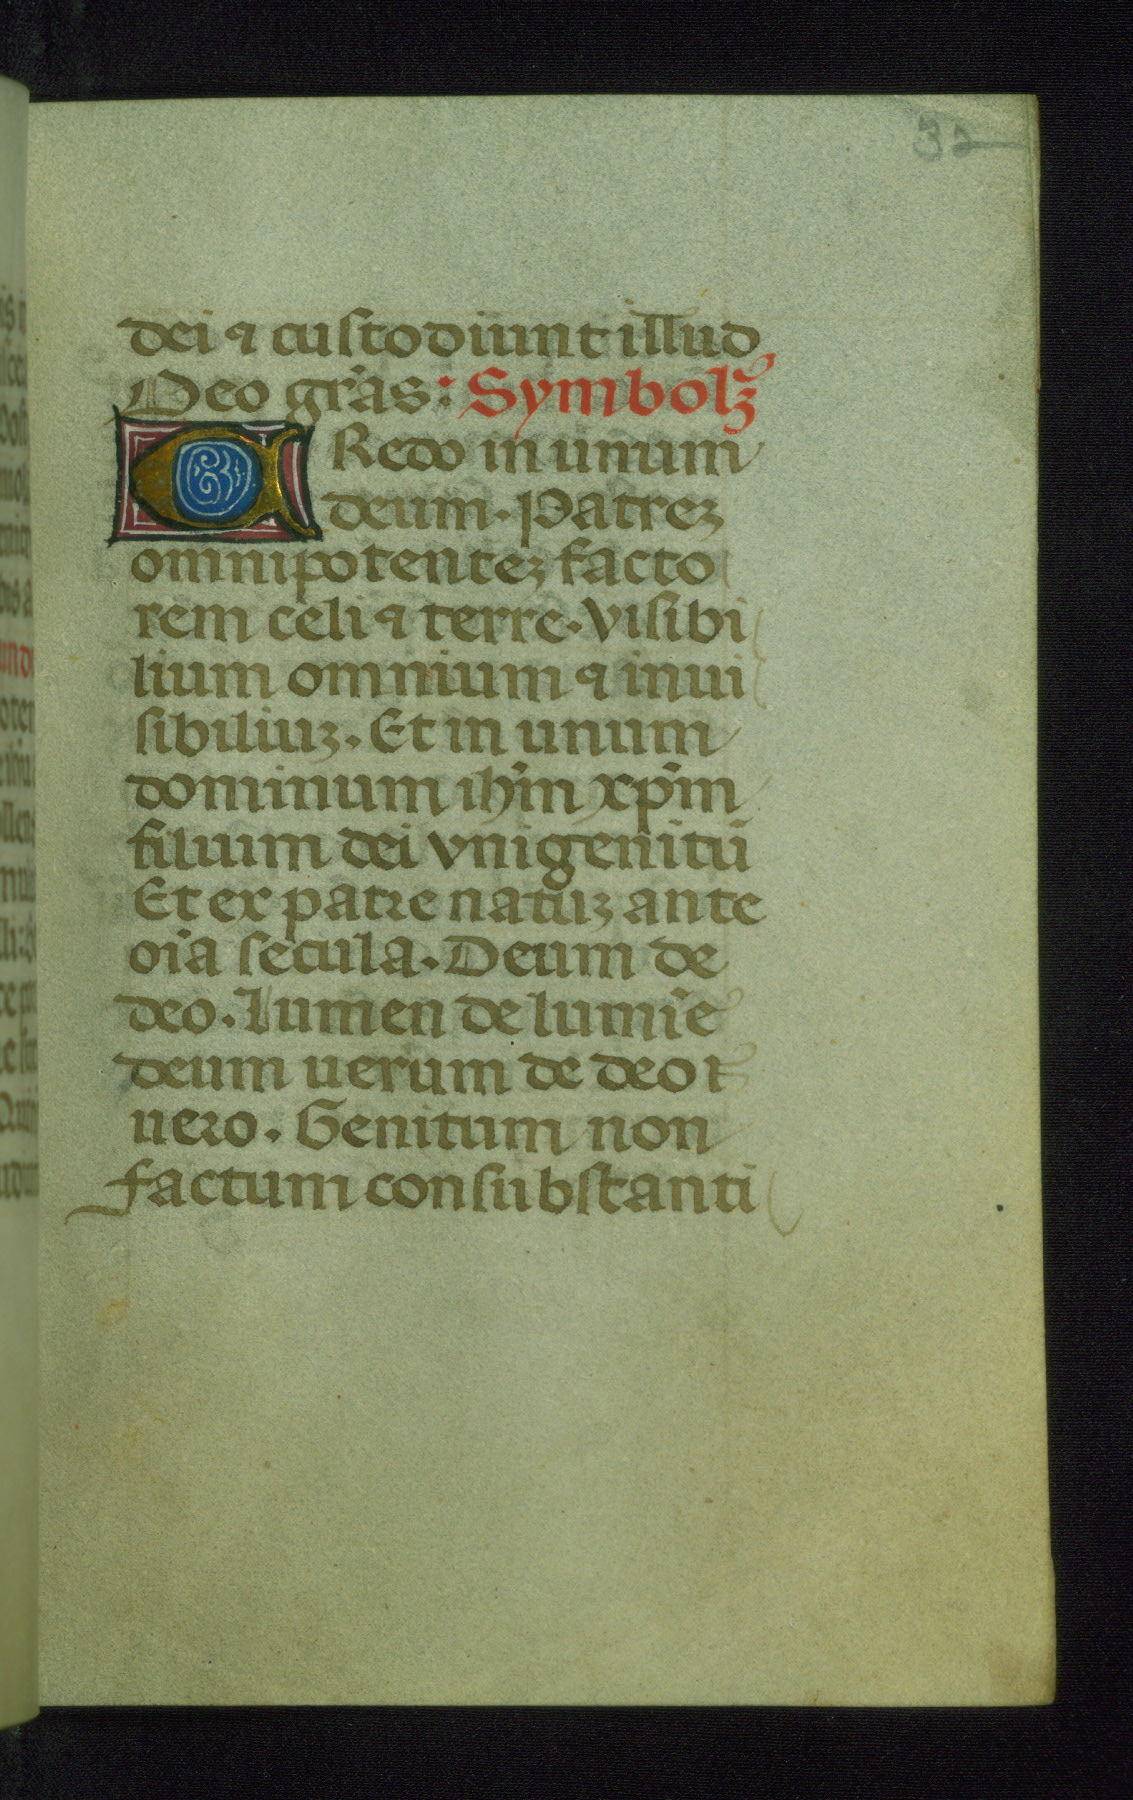 32
dei ⁊ custodiunt illud
Deo gr̃as: Symbolꝫ
CRedo in unum
deum. Patreꝫ
omnipotenteꝫ facto
rem celi ⁊ terre. Visibi
lium omnium ⁊ inui
sibiliuꝫ. Et in unum
dominum ihm̃ xpm̃
filium dei vnigenitū
Et ex patre natuꝫ ante
oĩa secula. Deum de
deo. Lumen de lumĩe
deum uerum de deo
uero. Genitum non
factum consubstanti